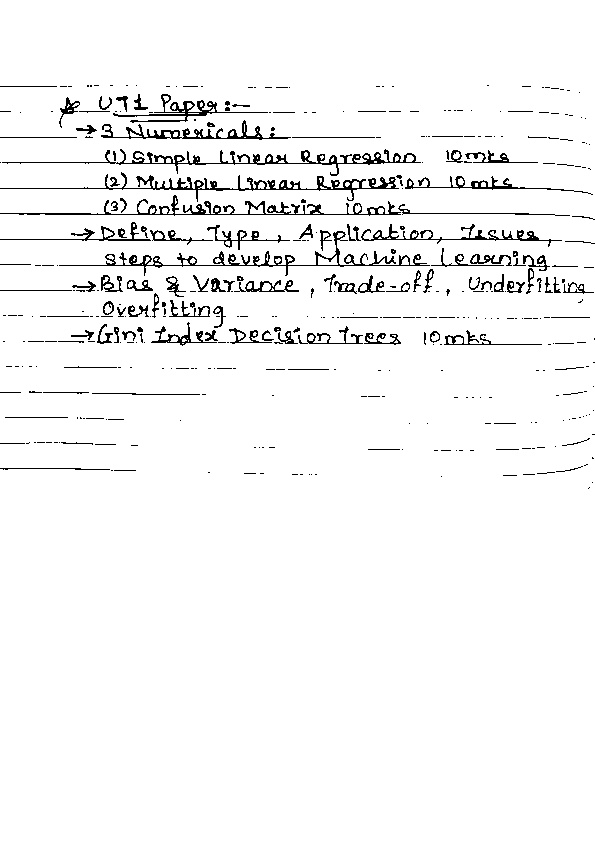 ☆ UT1 Paper:-
→ 3 Numericals:
(1) Simple Linear Regression 10mks
(2) Multiple Linear Regression 10mks
(3) Confusion Matrix 10mks
→ Define, Type, Application, Issues,
Steps to develop Machine Learning
→ Bias & Variance, Trade-off, Underfitting
Overfitting
→ Gini Index Decision Trees 10mks